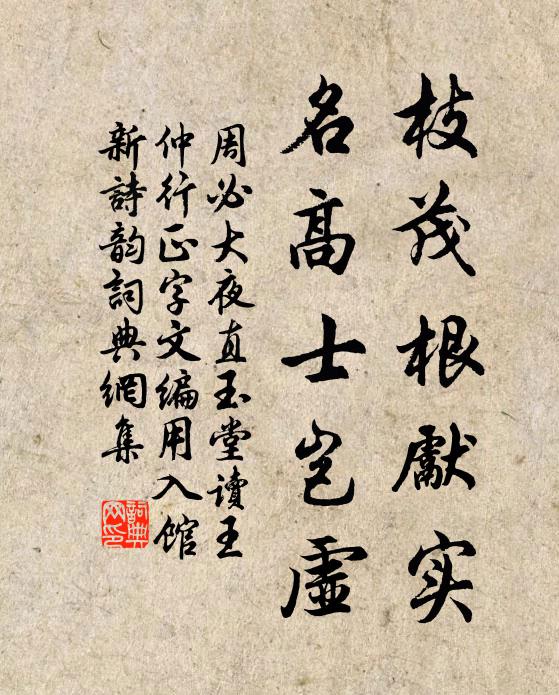 枝茂根獻实
名高士岂虛
周必大夜直玉堂讀王
仲行正字文编用入馆
新詩韵詞典網集
詞典网印